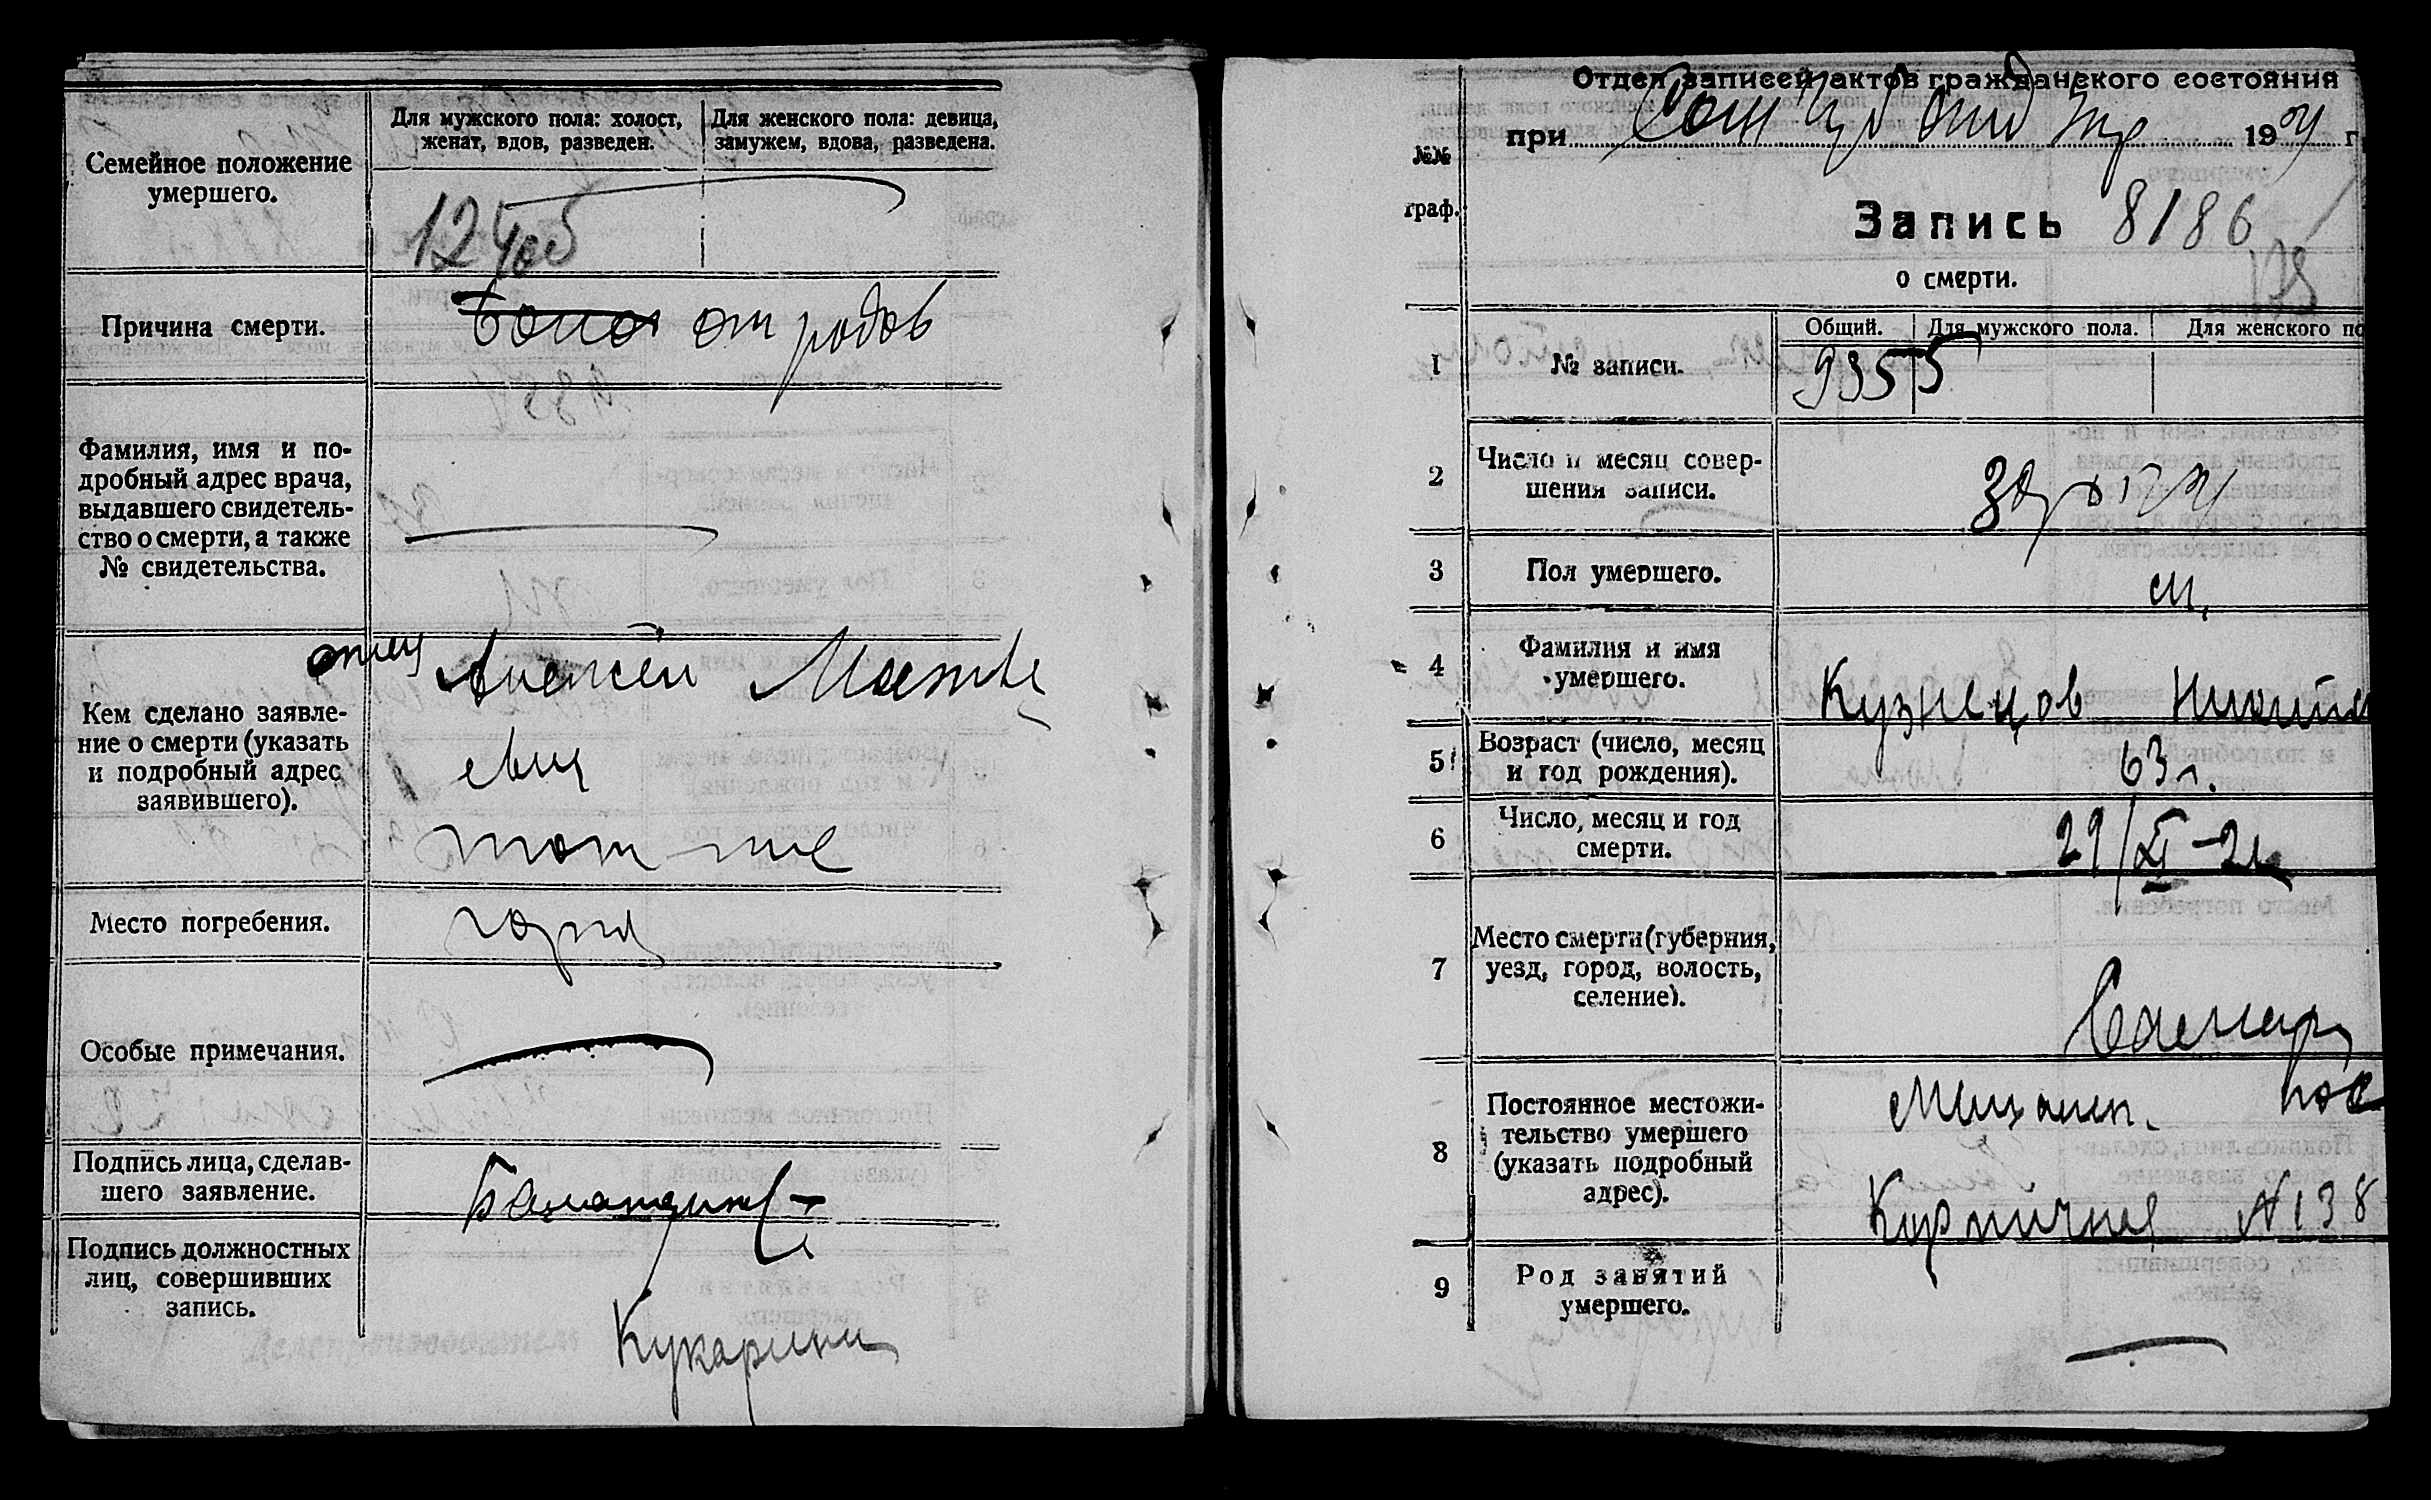 Семейное положение
умершего.
Для мужского пола: холост,
женат, вдов, разведен.
Для женского пола: девица,
замужем, вдова, разведена.
Причина смерти.
от родов
Фамилия, имя и по-
дробный адрес врача,
выдавшего свидетель-
ство о смерти, а также
№ свидетельства.
Кем сделано заявле-
ние о смерти (указать
и подробный адрес
заявившего).
отец Алексей Матве
евич
тот же
Место погребения.
Особые примечания.
Подпись лица, сделав-
шего заявление.
Подпись должностных
лиц, совершивших
запись.
Отдел записей актов гражданского состояния
при 19 г
№№
граф.
Запись 8186
о смерти.
1 № записи.
Общий. Для мужского пола. Для женского по
9355
2 Число и месяц совер-
шения записи.
3 Пол умершего.
м.
4 Фамилия и имя
умершего.
Кузнецов
5 Возраст (число, месяц
и год рождения).
63 л.
6 Число, месяц и год
смерти.
29/XI-21
7 Место смерти (губерния,
уезд, город, волость,
селение).
Самара
8 Постоянное местожи-
тельство умершего
(указать подробный
адрес).
Мещанск. пос
Кирпичная № 138
9 Род занятий
умершего.